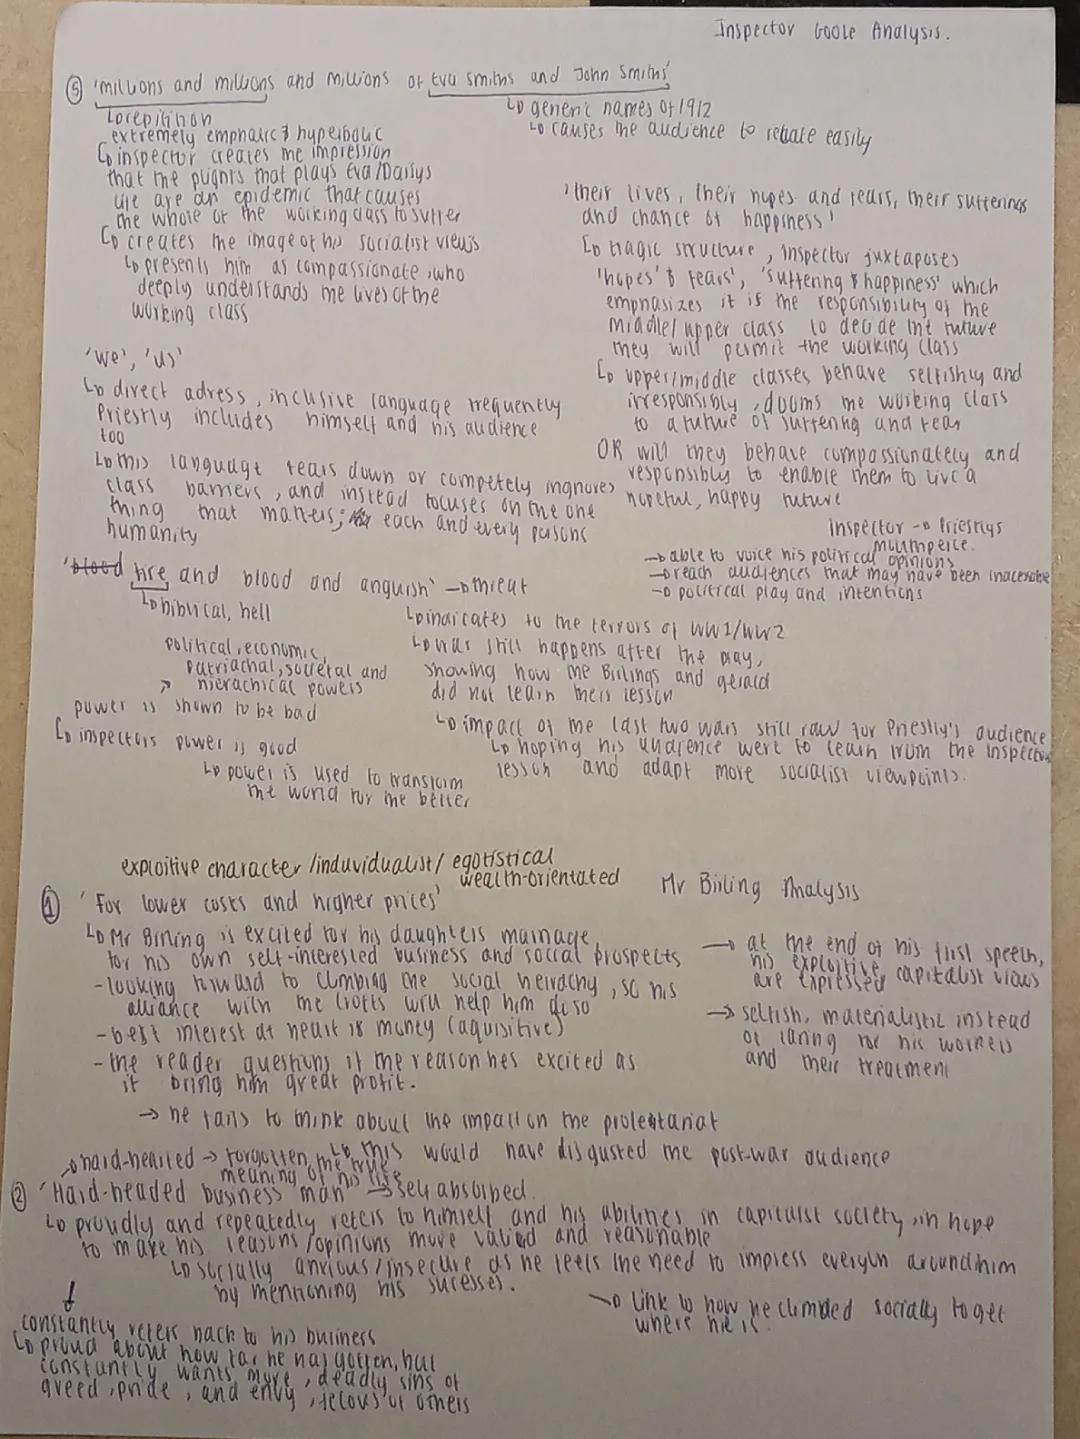 Inspector Goole Analysis.
⑤ 'millions and millions and millions of Eva Smiths and John Smiths'
↳ repitition
extremely emphatic & hyperbolic
↳ inspector creates the impression
that the plights that plays Eva/Daisys
life are an epidemic that causes
the whole of the working class to suffer
↳ creates the image of his socialist views
↳ presents him as compassionate, who
deeply understands the lives of the
working class
↳ generic names of 1912
↳ causes the audience to relate easily
'their lives, their hopes and fears, their sufferings
and chance of happiness'
↳ tragic structure, inspector juxtaposes
'hopes' & fears', 'suffering & happiness' which
emphasizes it is the responsibility of the
middle/upper class to decide the future
they will permit the working class
↳ upper/middle classes behave selfishly and
irresponsibly, dooms the working class
to a future of suffering and fear
OR will they behave compassionately and
responsibly to enable them to live a
hopeful, happy future
'we', 'us'
↳ direct adress, inclusive language frequently
Priestly includes himself and his audience
too
↳ this language tears down or competely ingnores
class barriers, and instead focuses on the one
thing that matters; each and every persons
humanity
Inspector → Priestlys
mouthpeice.
→ able to voice his political opinions
→ reach audiences that may have been inaccessible
→ political play and intentions
'blood fire and blood and anguish' → threat
↳ biblical, hell
↳ indicates to the terrors of WW1/WW2
↳ war still happens after the play,
showing how the Birlings and gerald
did not learn their lesson
↳ impact of the last two wars still raw for Priestly's audience
↳ hoping his audience were to learn from the Inspectors
lesson and adapt more socialist viewpoints.
political, economic,
patriachal, societal and
hierachical powers
power is shown to be bad
↳ inspectors power is good
↳ power is used to transform
the world for the better
exploitive character /induvidualist/ egotistical
wealth-orientated
Mr Birling Analysis
① 'For lower costs and higher prices'
↳ Mr Birling is excited for his daughters marriage,
for his own self-interested business and social prospects
- looking forward to climbing the social heirachy, so his
alliance with the Crofts will help him do so
- best interest at heart is money (aquisitive)
- the reader questions if the reason hes excited as
it bring him great profit.
→ he fails to think about the impact on the proletariat
↳ this would have disgusted the post-war audience
→ at the end of his first speech,
his exploitive, capitalist views
are expressed
→ selfish, materialistic instead
of caring for his workers
and their treatment
→ hard-hearted → forgotten the true
meaning of his life
② 'Hard-headed business man' → self absorbed.
↳ proudly and repeatedly refers to himself and his abilities in capitalst society, in hope
to make his reasons/opinions more valied and reasonable
↳ socially anxious/insecure as he feels the need to impress everyon around him
by mentioning his sucesses.
→ link to how he climbed socially to get
where he is.
constantly refers back to his business
↳ proud about how far he has gotten, but
constantly wants more, deadly sins of
greed, pride, and envy, jelous of others